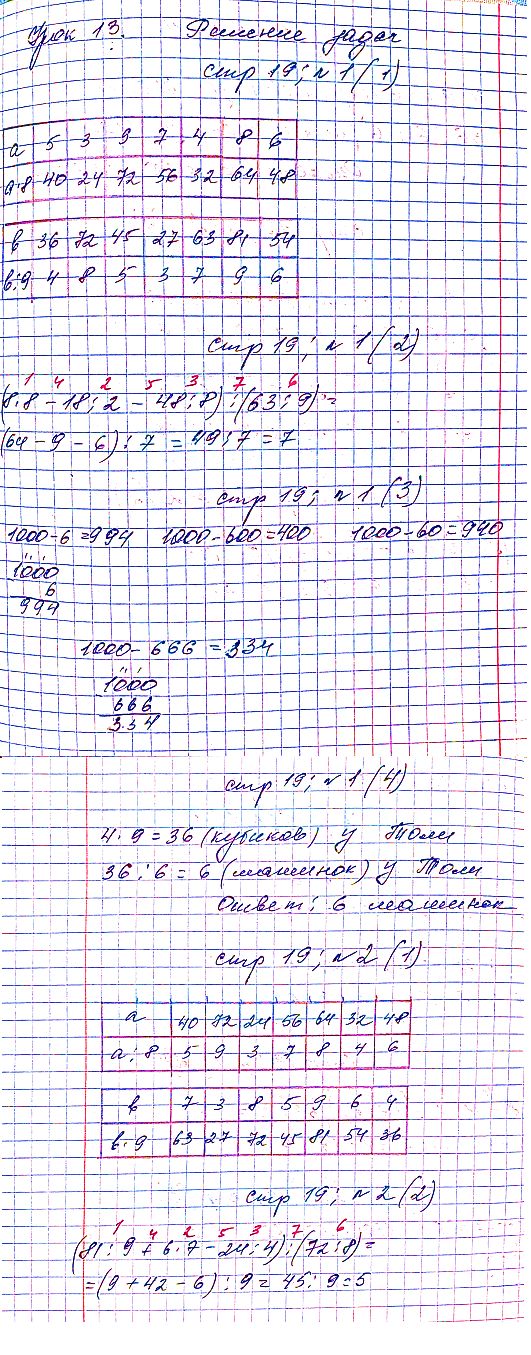 Урок 13. Решение задач
стр 19; № 1 (1)
а 5 3 9 7 4 8 6
а·8 40 24 72 56 32 64 48
в 36 72 45 27 63 81 54
в:9 4 8 5 3 7 9 6
стр 19; № 1 (2)
1 4 2 5 3 7 6
(8·8 - 18:2 - 48:8) : (63:9) =
(64 - 9 - 6) : 7 = 49:7 = 7
стр 19; № 1 (3)
1000-6=994 1000-600=400 1000-60=940
1000
6
994
1000- 666 = 334
1000
666
334
стр 19; № 1 (4)
4·9=36 (кубиков) у Толи
36:6 = 6 (машинок) у Толи
Ответ: 6 машинок
стр 19; № 2 (1)
а 40 72 24 56 64 32 48
а:8 5 9 3 7 8 4 6
в 7 3 8 5 9 6 4
в·9 63 27 72 45 81 54 36
стр 19; № 2 (2)
1 4 2 5 3 7 6
(81:9 + 6·7 - 24:4) : (72:8) =
=(9 + 42 - 6) : 9 = 45:9=5